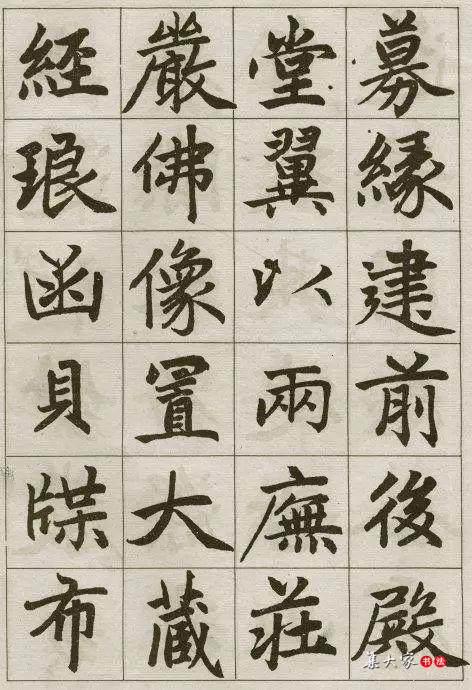 募緣建前後殿
堂翼以兩廡莊
嚴佛像置大藏
經琅函貝牒布
集大家书法